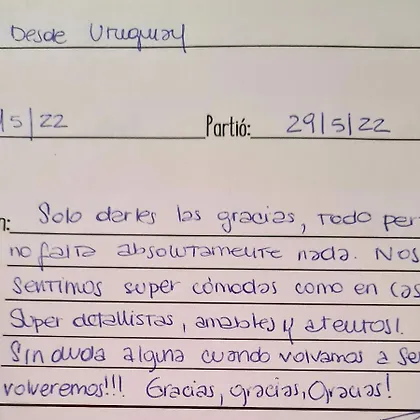 Desde Uruguay
/5/22 Partió: 29/5/22
n: Solo darles las gracias, todo per
no falta absolutamente nada. Nos
sentimos super cómodas como en cas
Super detallistas, amables y atentos!.
Sin duda alguna cuando volvamos a Se
volveremos!!! Gracias, gracias, Gracias!